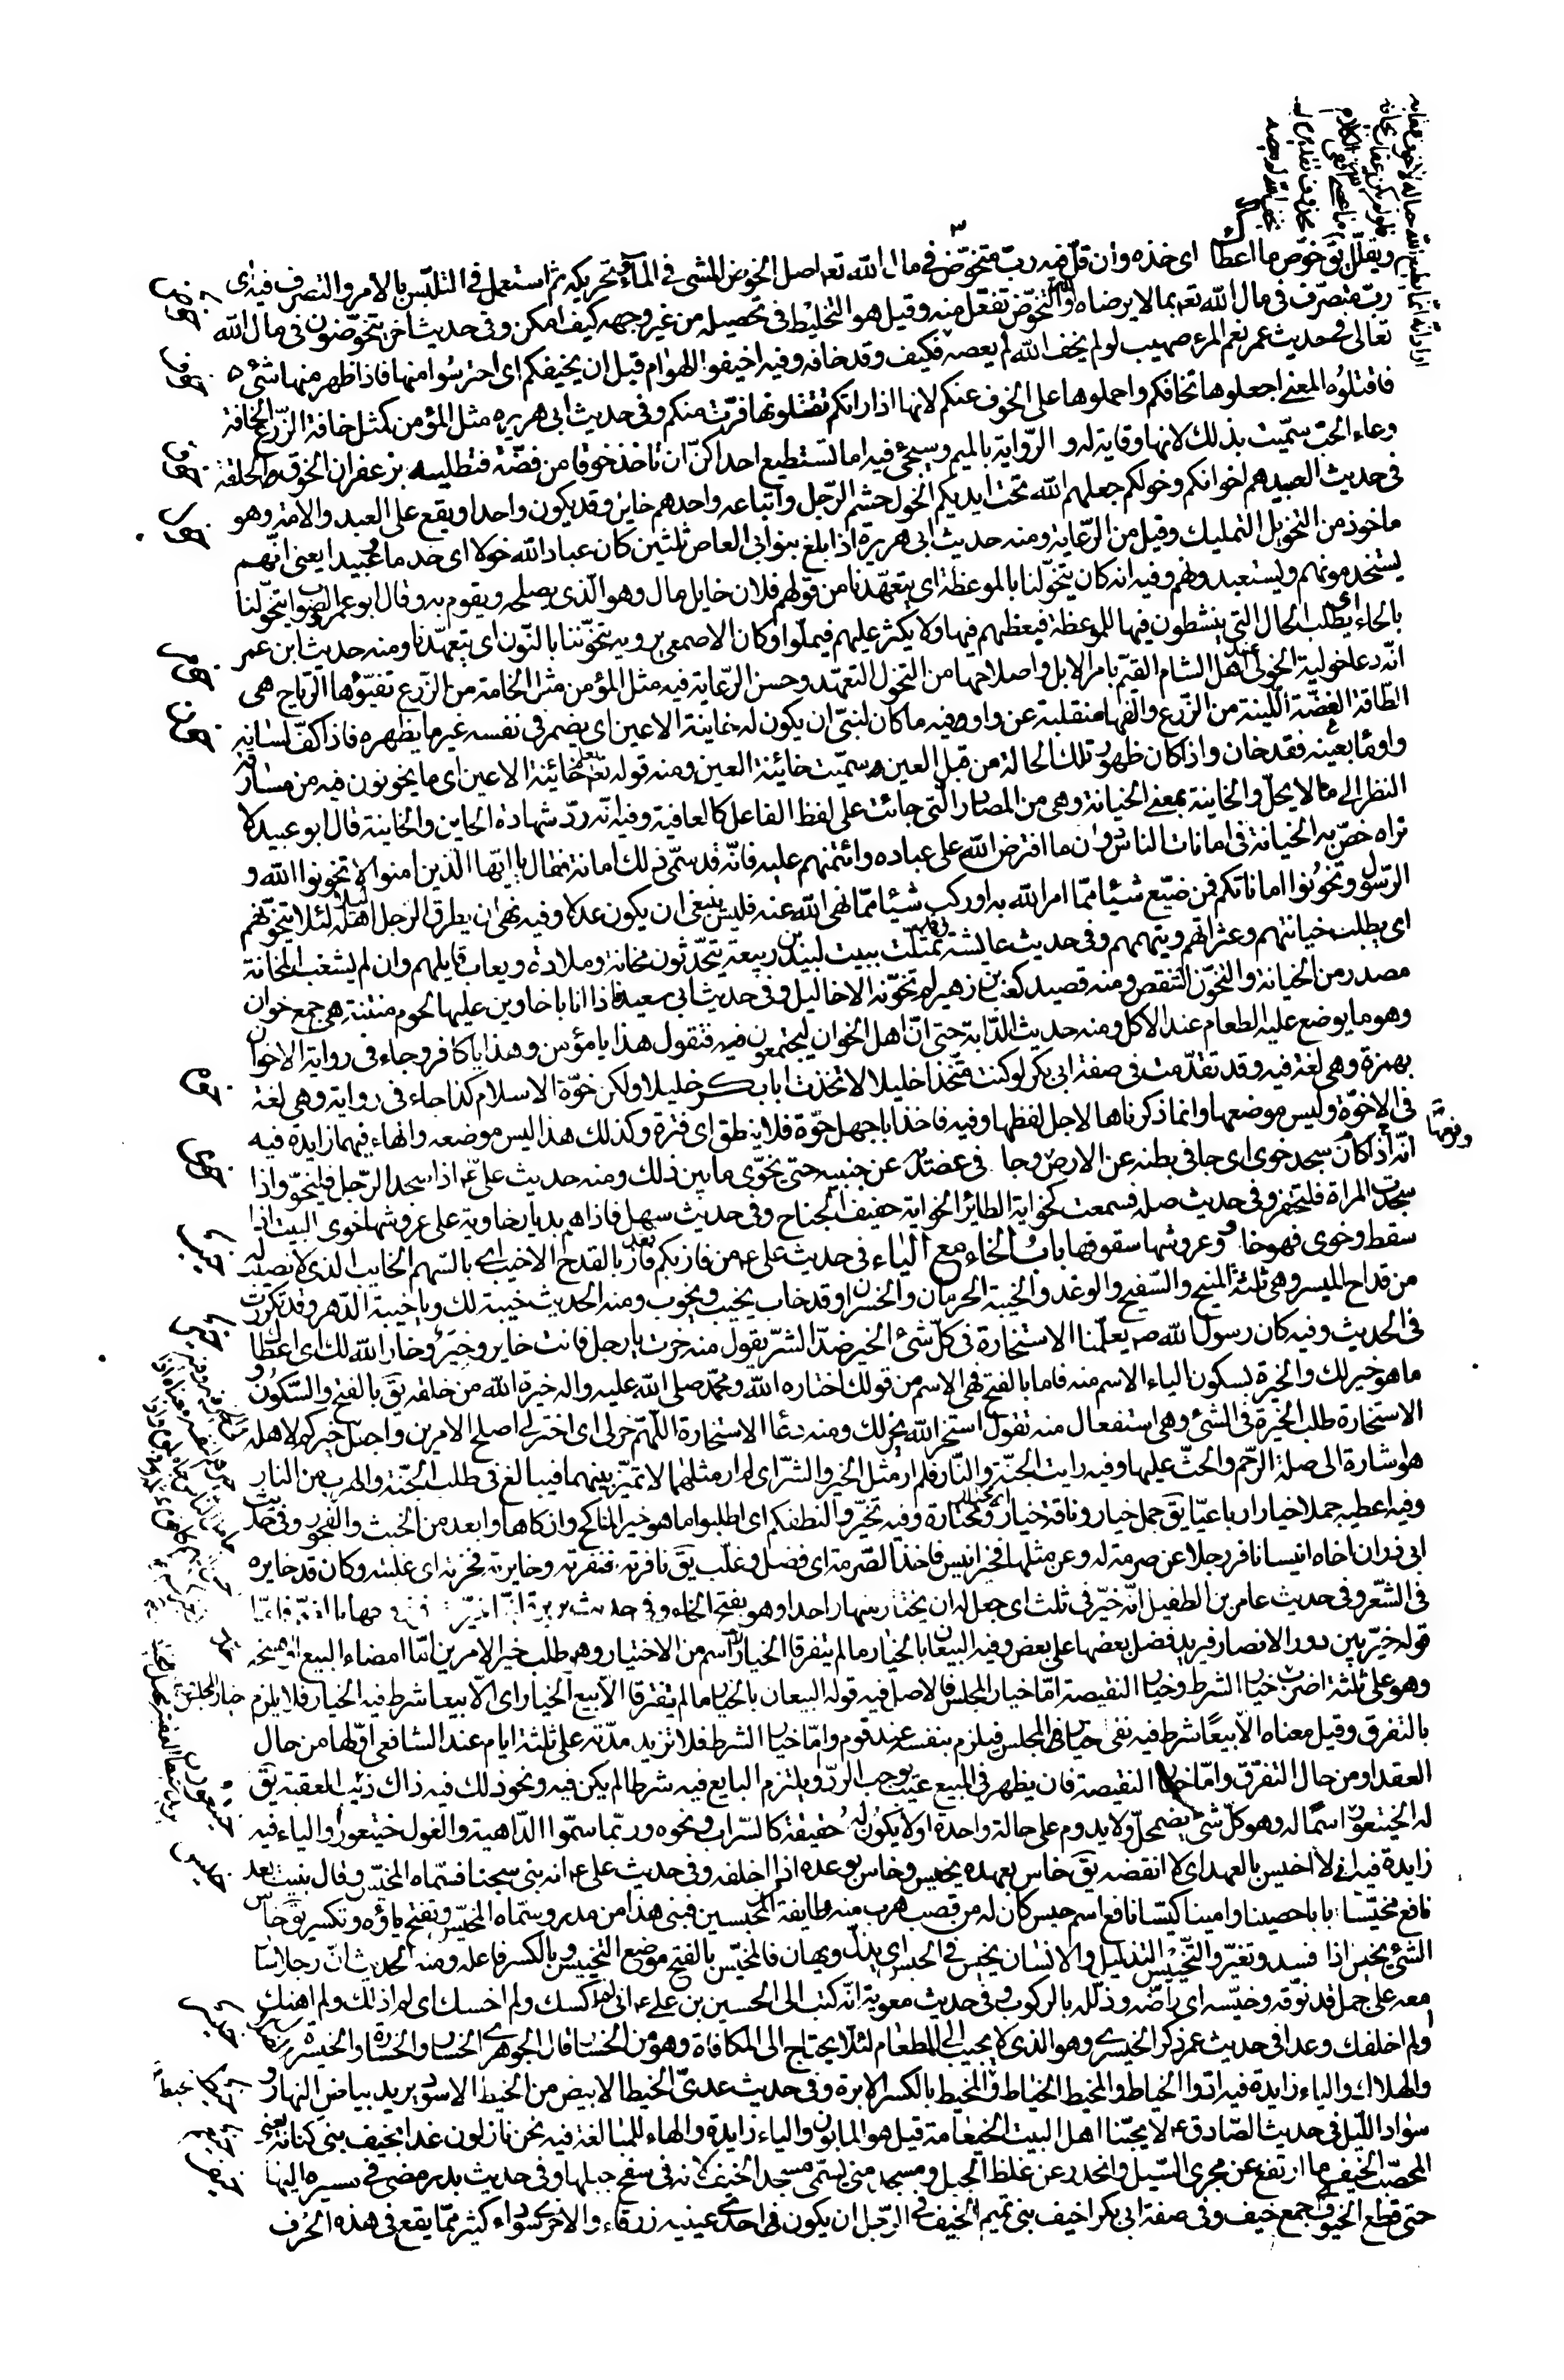 ويقلل يق خوّص ما اعطا اى خذه وان قلّ فيه ربّ متخوّض فى مال الله تعه اصل الخوض المشى فى الماء وتحريكه ثم استعمل فى التلبّس بالامر والتصرف فيه اى
ربّ متصرّف فى مال الله تعه بما لا يرضاه الله والتخوّض تفعّل منه وقيل هو التخليط فى تحصيله من غير وجهه كيف امكن وفى حديث اخر يتخوّضون فى مال الله
تعالى فى حديث عمر نعم المرء صهيب لو لم يخف الله لم يعصه فكيف وقد خافه وفيه اخيفوا الهوام قبل ان يخيفكم اى احترسوا منها فاذا ظهر منها شئ
فاقتلوه المعنى اجعلوها تخافكم واحملوها على الخوف عنكم لانها اذا راتكم تقتلونها فرّت منكم وفى حديث ابى هريره مثل المؤمن كمثل خافة الزرع الخافة
وعاء الحبّ سمّيت بذلك لانها وقاية له و الرّواية بالميم وسيجئ فيه اما تستطيع احداكنّ ان تاخذ خوقا من فضّة فتطليه بزعفران الخوق الحلقة
فى حديث العبيد هم اخوانكم وخولكم جعلهم الله تحت ايديكم الخول حشم الرّجل واتباعه واحدهم خايل وقد يكون واحدا ويقع على العبد والامة وهو
ماخوذ من التخويل التمليك وقيل من الرّعاية ومنه حديث ابى هريرة اذا بلغ بنو ابى العاص ثلثين كان عباد الله خولا اى خدما وعبيدا يعنى انّهم
يستخدمونهم ويستعبدونهم وفيه انه كان يتخوّلنا بالموعظة اى يتعهّدنا من قولهم فلان خايل مال وهو الّذى يصلحه ويقوم به وقال ابو عمر الصواب يتحوّلنا
بالحاء اى يطلب الحال التى ينشطون فيها للموعظة فيعظهم فيها ولا يكثر عليهم فيملّوا وكان الاصمعى يرويه يتخوّننا بالنّون اى يتعهّدنا ومنه حديث ابن عمر
انّه دعا خولية الخولى عند اهل الشام القيّم بامر الابل واصلاحها من التخول التعهّد وحسن الرّعاية فيه مثل المؤمن مثل الخامة من الزّرع تفيّؤها الرّياح هى
الطّاقة الغضّة اللّينة من الزّرع والفها منقلبة عن واو فيه ما كان لنبىّ ان يكون له خاينة الاعين اى يضمر فى نفسه غير ما يظهره فاذا كفّ لسانه
واومأ بعينه فقد خان واذا كان ظهور تلك الحالة من قبل العين سمّيت خائنة العين ومنه قوله تعه يعلم خائنة الاعين اى ما يخونون فيه من مسارقة
النظر الى ما لا يحلّ والخاينة بمعنى الخيانة وهى من المصادر التى جائت على لفظ الفاعل كالعافية وفيه انّه ردّ شهادة الخاين والخاينة قال ابو عبيد لا
نراه خصّ به الخيانة فى امانات الناس دون ما افترض الله على عباده وائتمنهم عليه فانّه قد سمّى ذلك امانة فقال يا ايّها الّذين امنوا لا تخونوا الله و
الرّسول وتخونوا اماناتكم فمن ضيّع شيئا ممّا امر الله به او ركب شيئا ممّا نهى الله عنه فليس ينبغى ان يكون عدلا وفيه نهى ان يطرق الرجل اهله ليلا لئلا يتخوّنهم
اى يطلب خيانتهم وعثراتهم ويتهمهم وفى حديث عايشة تمثّلت ببيت لبيد بن ربيعة يتحدّثون مخانة وملاذة ويعاب قايلهم وان لم يشغب المخانة
مصدر من الخيانة والتخوّن التنقص ومنه قصيد كعب بن زهير لم تخوّنه الاحاليل وفى حديث ابى سعيد فاذا انا باخاوين عليها لحوم منتنة هى جمع خوان
وهو ما يوضع عليه الطعام عند الاكل ومنه حديث الدّابة حتى انّ اهل الخوان ليجتمعون فيه فتقول هذا يا مؤمن وهذا يا كافر وجاء فى رواية الاخوان
بهمزة وهى لغة فيه وقد تقدّمت فى صفة ابى بكر لو كنت متخذا خليلا لاتخذت ابابكر خليلا ولكن خوّة الاسلام كذا جاء فى رواية وهى لغة
فى الاخوّة وليس موضعها وانما ذكرناها لاجل لفظها وفيه فاخذ ابا جهل خوّة فلا ينطق اى فترة وكذلك هذا ليس موضعه والهاء فيهما زايدة فيه
انّه اذا كان سجد خوى اى جافى بطنه عن الارض وجا فى عضديه عن جنبيه حتى يخوّى ما بين ذلك ومنه حديث علىّ ع اذا سجد الرّجل فليخوّ واذا
سجدت المراة فلتحتفز وفى حديث صله فسمعت كخواية الطائر الخواية حفيف الجناح وفى حديث سهل فاذاهم بديار خاوية على عروشها خوى البيت اذا
سقط وخوى فهو خا و وعروشها سقوفها باب الخاء مع الياء فى حديث على ع من فاز بكم فاز بالقدح الاخيب اى بالسّهم الخايب الذى لا نصيب له
من قداح الميسر وهى ثلثة المنيح والسّفيح والوغد والخيبة الحرمان والخسران وقد خاب يخيب ويخوب ومنه الحديث خيبة لك ويا خيبة الدّهر وقد تكررت
فى الحديث وفيه كان رسول الله ص يعلّمنا الاستخارة فى كلّ شئ الخير ضدّ الشرّ يقول منه خرت يا رجل فانت خاير وخيّر وخار الله لك اى اعطاك
ما هو خير لك والخيرة بسكون الياء الاسم منه فاما بالفتح فهى الاسم من قولك اختاره الله ومحمّد صلى الله عليه واله خيرة الله من خلقه يق بالفتح والسّكون و
الاستخارة طلب الخيرة فى الشئ وهى استفعال منه تقول استخر الله يخر لك ومنه دعا الاستخارة اللّهمّ خر لى اى اختر لى اصلح الامرين واجعل خيركم لاهله
هو اشارة الى صلة الرّحم والحثّ عليها وفيه رايت الجنّة والنّار فلم ار مثل الخير والشرّ اى لم ار مثلهما لا تميّز بينهما فيبالغ فى طلب الجنّة والهرب من النار
وفيه اعطيه جملا خيارا رباعيّا يق جمل خيار وناقة خيار اى مختار ومختارة وفيه تخيّروا لنطفكم اى اطلبوا ما هو خير المناكح وازكاها وابعد من الخبث والفجور وفى حديث
ابى ذر ان اخاه انيسا نافر رجلا عن صرمة له وعن مثلها فخيّر انيس فاخذ الصّرمة اى فضل وغلب يق نافرته فنفرته وخايرته فخرته اى غلبته وكان قد خايره
فى الشعر وفى حديث عامر بن الطفيل انّه خيّر فى ثلث اى جعل له ان يختار منها واحدا وهو بفتح الخاء وفى حديث بريرة انّها خيّرت فى زوجها بالضمّ فامّا
قوله خيّر بين دور الانصار فيريد فضل بعضها على بعض وفيه البيعان بالخيار ما لم يتفرقا الخيار اسم من الاختيار وهو طلب خير الامرين امّا امضاء البيع او فسخه
وهو على ثلثة اضرب خيار الشرط وخيار النقيصة امّا خيار المجلس فالاصل فيه قوله البيعان بالخيار ما لم يتفرقا الّا بيع الخيار اى الّا بيعا شرط فيه الخيار فلا يلزم
بالتفرق وقيل معناه الّا بيعًا شرط فيه نفى خيار المجلس فيلزم بنفسه عند قوم وامّا خيار الشرط فلا تزيد مدّته على ثلثة ايام عند الشافعى اوّلها من حال
العقد او من حال التفرّق وامّا خيار النقيصة فان يظهر فى المبيع عيب يوجب الردّ ويلتزم البايع فيه شرطا لم يكن فيه ونحو ذلك فيه ذاك ذئب العقبة يق
له الخيتعور اسمًا له وهو كلّ شئ يضمحلّ ولا يدوم على حالة واحدة او لا يكون له حقيقة كالسّراب ونحوه وربّما سمّوا الدّاهية والغول خيتعورا والياء فيه
زايدة فيه انى لا اخيس بالعهد اى لا انقضه يق خاس بعهده يخيس وخاس بوعده اذا اخلفه وفى حديث على ع انه بنى سجنا فسمّاه المخيّس وقال بنيت بعد
نافع مخيّسا بابا حصينا وامينا كيّسا نافع اسم حبس كان له من قصب هرب منه طايفة من المحبسين فبنى هذا من مدر وسمّاه المخيّس وتفتح ياؤه وتكسر يق خاس
الشئ يخيس اذا فسد وتغيّر والتّخييس التذليل والانسان يخيس فى الحبس اى يذلّ ويهان فالمخيّس بالفتح موضع التخييس وبالكسر فاعله ومنه الحديث انّ رجلا سار
معه على جمل قد نوّقه وخيّسه اى راضه وذلّله بالركوب وفى حديث معوية انّه كتب الى الحسين بن على ع انى لم اكسك ولم اخسك اى لم اذلك ولم اهنك
او لم اخلفك وعدا فى حديث عمر ذكر الخيسرى وهو الذى لا يجيب الى الطعام لئلّا يحتاج الى المكافاة وهو من الخسار قال الجوهرى الخسار والخسارة والخيسرى
والهلاك والياء زايدة فيه ادّوا الخياط والمخيط الخياط الخيط والمخيط بالكسر الابرة وفى حديث عدىّ الخيط الابيض من الخيط الاسود يريد بياض النهار و
سواد اللّيل فى حديث الصّادق ع لا يحبّنا اهل البيت الخيعامة قيل هو المابون والياء زايدة والهاء للمبالغة فيه نحن نازلون غدا بخيف بنى كنانة يعنى
المحصّب الخيف ما ارتفع عن مجرى السّيل وانحدر عن غلظ الجبل ومسجد منى يسمّى مسجد الخيف لانه فى سفح جبلها وفى حديث بدر مضى فى مسيره اليها
حتى قطع الخيوف جمع خيف وفى صفة ابى بكر اخيف بنى تميم الخيف فى الرّجل ان يكون فى احدى عينيه زرقاء والاخرى سوداء كثير ممّا يقع فى هذه الحرف